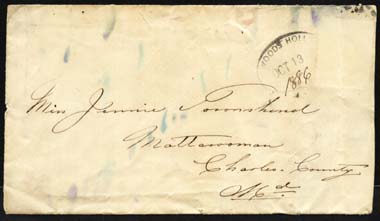 WOODS HOLL
OCT 13
1886
Miss Jennie Townshend
Mattawoman
Charles County
Md.